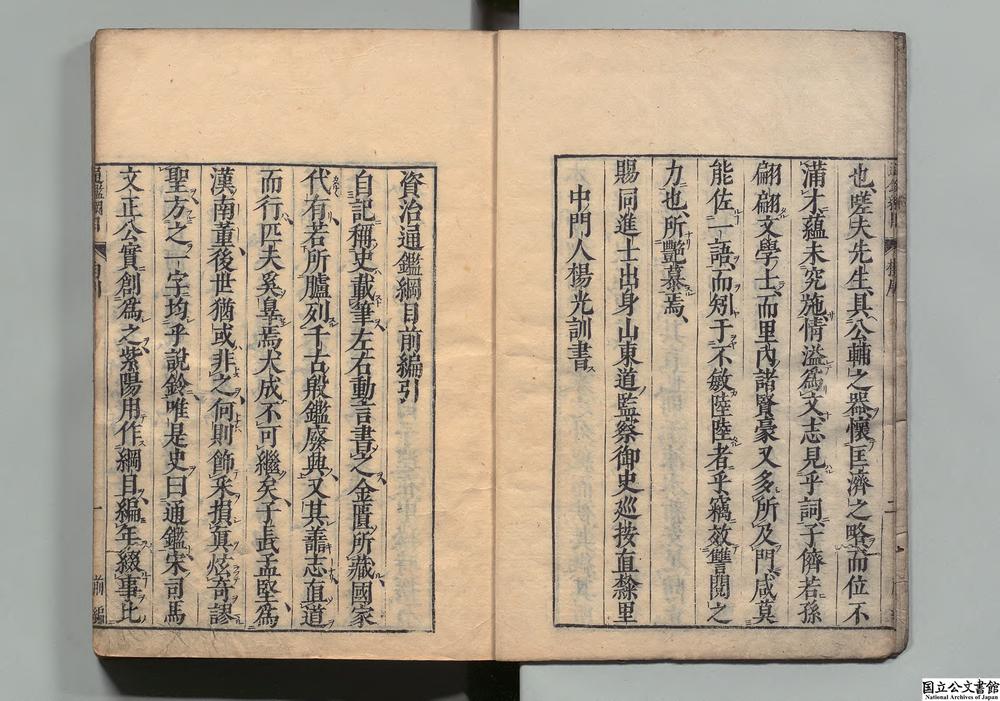 也嗟夫先生具公輔之器懷匡濟之略而位不
滿才蘊未究施情溢爲文志見乎詞子儕若孫
翩翩文學士而里內諸賢豪又多所及門咸莫
能佐一語而矧于不敏陸陸者乎竊效讐閱之
力也所艷慕焉
賜同進士出身山東道監察御史巡按直隸里
中門人楊光訓書
資治通鑑綱目前編引
自記稱史載筆左右動言書之金匱所藏國家
代有若所臚列千古殷鑑廢典又其善志直道
而行匹夫奚辠焉犬成不可繼矣子武孟堅爲
漢南董後世猶或非之何則飾采損眞炫奇謬
聖方之一字均乎說鈴唯是史曰通鑑宋司馬
文正公實創爲之紫陽用作綱目編年綴事比
前編
国立公文書館
National Archives of Japan